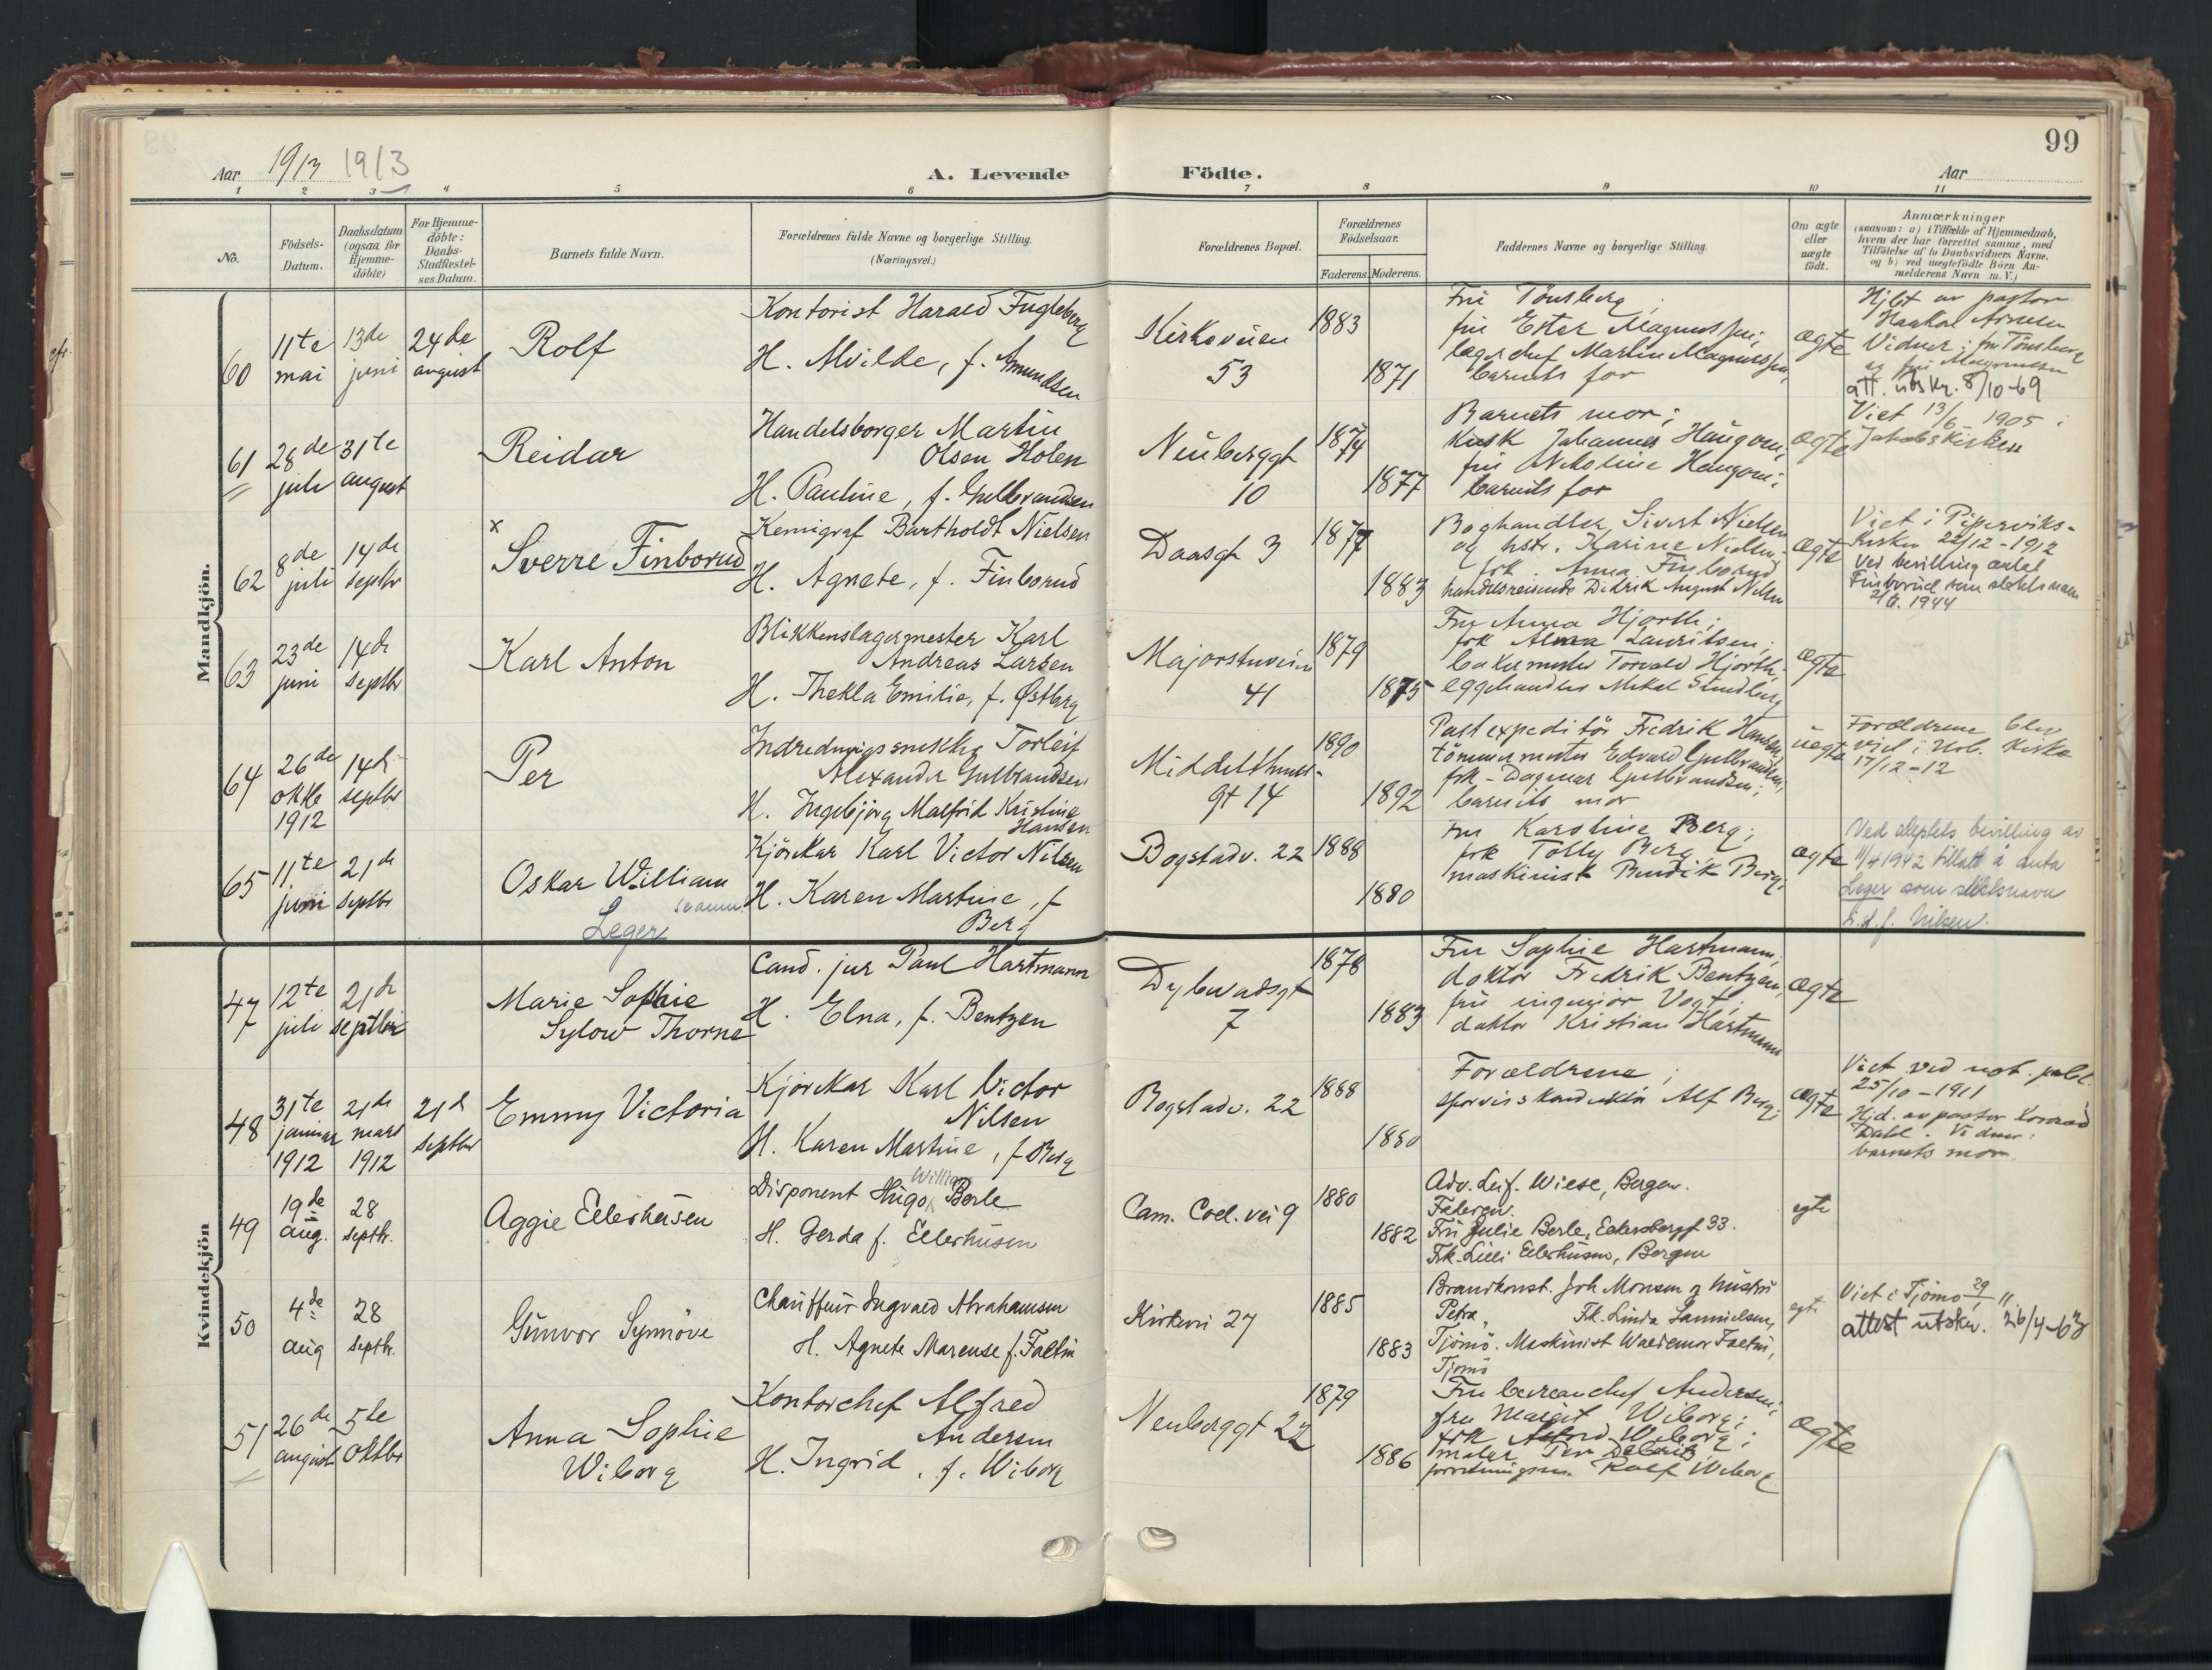 99
Aar 1913 1913
A. Levende Födte.
Aar
1 2 3 4 5 6 7 8 9 10 11
No.
Födsels-Datum.
Daabsdatum (ogsaa for Hjemme-döbte)
For Hjemme-döbte: Daabs-Stadfæstel-ses Datum.
Barnets fulde Navn.
Forældrenes fulde Navne og borgerlige Stilling. (Næringsvei.)
Forældrenes Bopæl.
Forældrenes Födselsaar.
Faderens. Moderens.
Faddernes Navne og borgerlige Stilling.
Om ægte eller uægte födt.
Anmærkninger
(saasom: a) i Tilfælde af Hjemmedaab,
hvem der har forrettet samme, med
Tilföielse af to Daabsvidners Navne.
og b) ved uægtefödte Börn An-
melderens Navn m. V.)
Mandkjön.
60 11te mai 13de juni 24de august
Rolf
Kontorist Harald Fugleberg
H. Alvilde, f. Amundsen
Kirkeveien 53
1883 1871
Fru Tönsberg;
fru Ester Magnussen;
lagerchef Martin Magnussen,
barnets far
ægte
Hjbt av pastor
Haakon
Vidner: fru Tönsberg
og fru Magnussen
att. utskr. 8/10-69
61 28de juli 31te august
Reidar
Handelsborger Martin
Olsen Holen
H. Pauline, f. Gulbrandsen
Neuberggt 10
1874 1877
Barnets mor;
Kusk Johannes Haugom;
fru Nikoline Haugom;
barnets far
ægte
Viet 13/6 1905 i
Jakobskirken
62 8de juli 14de septbr
x Sverre Finborud
Kemigraf Bartholdt Nielsen
H. Agnete, f. Finborud
Daasgt 3
1877 1883
Boghandler Sivert Nielsen
og hstr. Karine Nielsen;
frk. Anna Finborud
handelsreisende Didrik August Nilsen
ægte
Viet i Piperviks-
kirken 22/12-1912
Ved bevilling antat
Finborud som slektsnavn
1944
63 23de juni 14de septbr
Karl Anton
Blikkenslagermester Karl
Andreas Larsen
H. Thekla Emilie, f. Østberg
Majorstuveien 41
1879 1875
Fru Anna Hjorth;
frk Alma Lauritsen;
bakermester Torvald Hjorth;
eggehandler Mikal Sundberg
ægte
64 26de oktb 1912 14de septbr
Per
Alexander Gulbrandsen
H. Ingebjörg Malfrid Kristine
Hansen
Middelthuns-
gt 14
1890 1892
Postexpeditör Fredrik Hansen,
tömmermester Edvard Gulbrandsen,
frk. Dagmar Gulbrandsen;
barnets mor
uegte
Forældrene blev
viet i Urb. kirke
17/12-12
65 11te juni 21de septbr
Oskar William
Leger
Kjörekar Karl Victor Nilsen
H. Karen Martine, f
Berg
Bogstadv. 22
1888 1880
Fru Karoline Berg;
frk Tolly Berg
maskinist Bendik Berg;
ægte
Ved dleptets bevilling av
11/4 1942 tillatt å anta
Leger som slektsnavn
i.st.f. Nilsen.
Kvindekjön
47 12te juli 21de septbr
Marie Sophie
Sylow Thorne
Cand. jur Paul Hartmann
H. Elna, f. Bentzen
Dybwadsgt
7
1878 1883
Fru Sophie Hartmann;
doktor Fredrik Bentzen;
fru ingeniör Vogt;
doktor Kristian Hartmann
ægte
48 31te januar 1912 21de mars 1912 21de septbr
Emmy Victoria
Kjörekar Karl Victor
Nilsen
H. Karen Martine, f Berg
Bogstadv. 22
1888 1880
Forældrene;
sporveiskonduktör Alf Berg;
ægte
Viet ved not. publ.
25/10-1911
Hjd. av pastor Konrad
Dahl. Vidner:
barnets mor
49 19de aug. 28 septbr.
Aggie Ellerhusen
Disponent Hugo William Berle
H. Gerda f. Ellerhusen
Cam. Coll. vei 9
1880 1882
Adv. Leif. Wiese, Bergen.
Faderen.
Fru Julie Berle, Eilersbergt 33.
Frk. Lilli Ellerhusen, Bergen
egte
50 4de aug 28 septbr.
Gunvor Synnöve
Chauffeur Ingvald Abrahamsen
H. Agnete Marense f. Faltin
Kirkevei 27
1885 1883
Brandkonst. Joh Monsen og hustru
Petra, Frk. Linda Samuelsen,
Tjömö. Maskinist Waldemar Faltin,
Tjömö
egte
Viet i Tjömö 29/ 11.
attest utskr. 26/4-63
51 26de august 5te oktbr
Anna Sophie
Wiborg
Kontorchef Alfred
Andersen
H. Ingrid, f. Wiborg
Neuberggt 22
1879 1886
Fru bureauchef Andersen;
fru Margit Wiborg;
frk Astrid Wiborg;
maler Per Deberitz
forretningsm. Rolf Wiborg
ægte